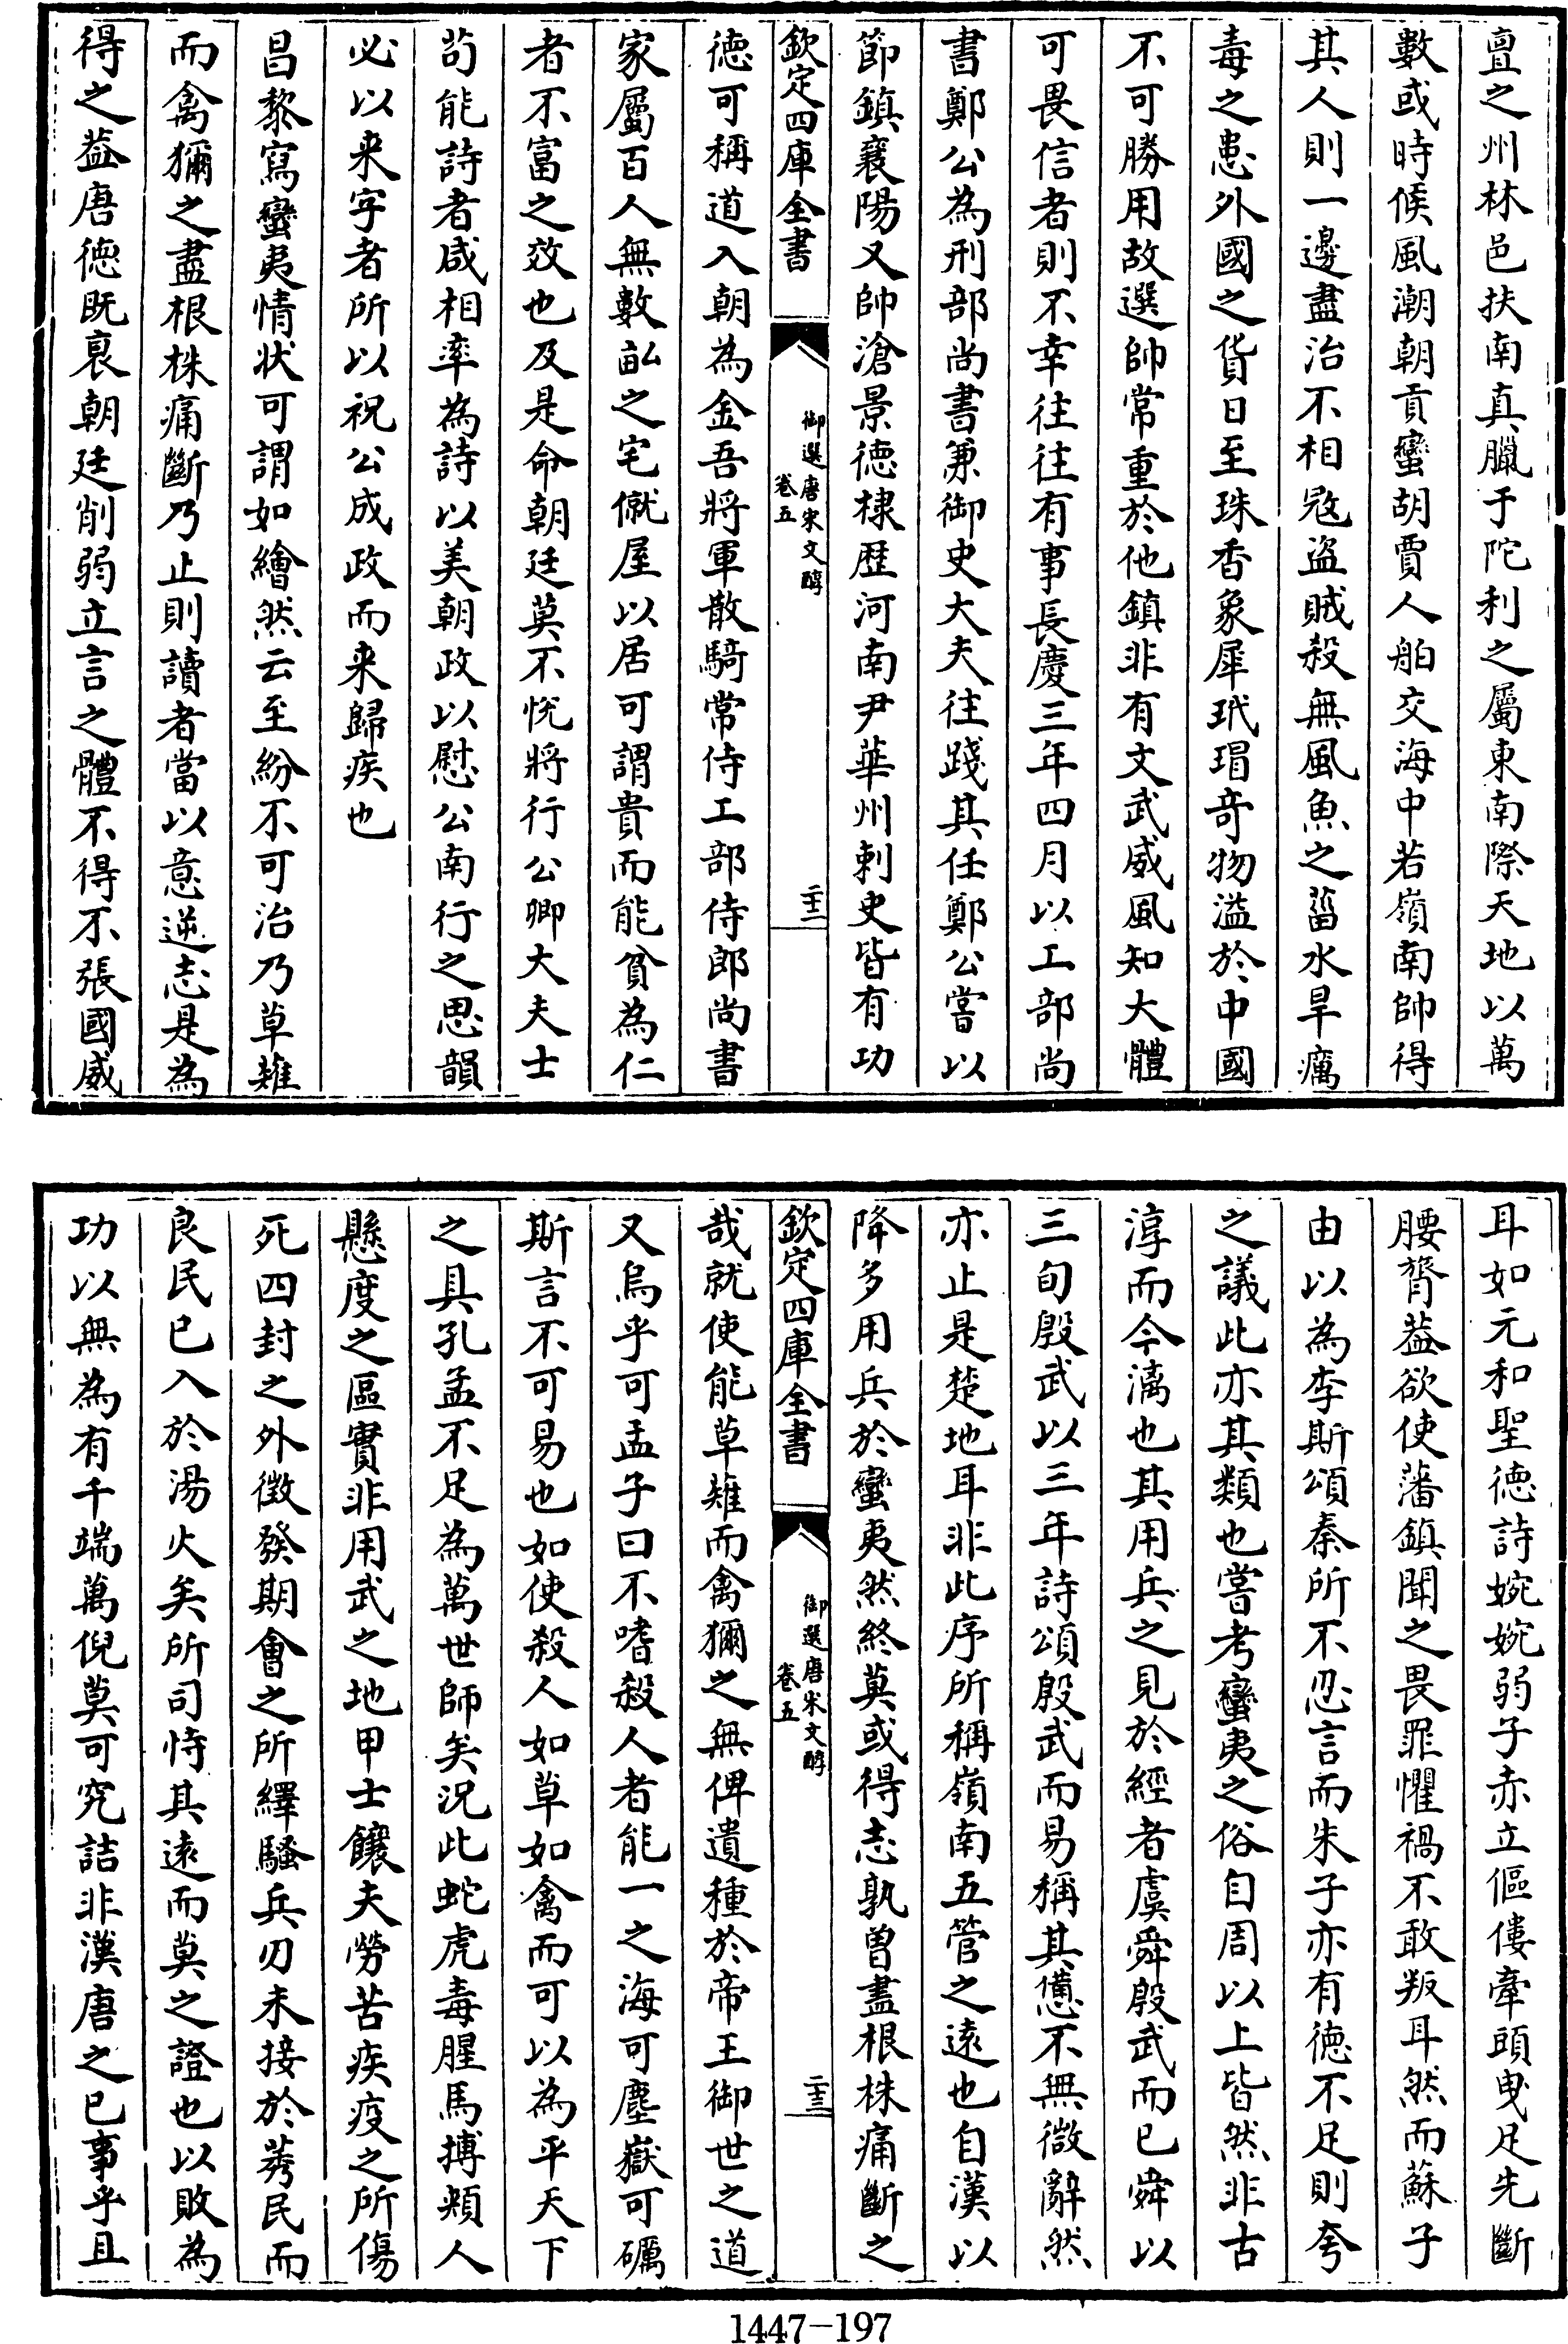 亶之州林邑扶南真臘于陀利之屬東南際天地以萬
數或時候風潮朝貢蠻胡賈人舶交海中若嶺南帥得
其人則一邊盡治不相冦盜賊殺無風魚之菑水旱癘
毒之患外國之貨日至珠香象犀玳瑁奇物溢於中國
不可勝用故選帥常重於他鎮非有文武威風知大體
可畏信者則不幸往往有事長慶三年四月以工部尚
書鄭公為刑部尚書兼御史大夫往踐其任鄭公嘗以
節鎮襄陽又帥滄景德棣歴河南尹華州刺史皆有功
欽定四庫全書
御選唐宋文醇
卷五
二十二
德可稱道入朝為金吾將軍散騎常侍工部侍郎尚書
家屬百人無數畝之宅僦屋以居可謂貴而能貧為仁
者不富之效也及是命朝廷莫不悅將行公卿大夫士
苟能詩者咸相率為詩以美朝政以慰公南行之思韻
必以来字者所以祝公成政而来歸疾也
昌黎寫蠻夷情状可謂如繪然云至紛不可治乃草薙
而禽獮之盡根株痛斷乃止則讀者當以意逆志是為
得之葢唐德既衰朝廷削弱立言之體不得不張國威
耳如元和聖德詩婉婉弱子赤立傴僂牽頭曳足先斷
腰膂葢欲使藩鎮聞之畏罪懼禍不敢叛耳然而蘇子
由以為李斯頌秦所不忍言而朱子亦有德不足則夸
之議此亦其類也嘗考蠻夷之俗自周以上皆然非古
淳而今漓也其用兵之見於經者虞舜殷武而已舜以
三旬殷武以三年詩頌殷武而易稱其憊不無微辭然
亦止是楚地耳非此序所稱嶺南五管之遠也自漢以
降多用兵於蠻夷然終莫或得志孰曾盡根株痛斷之
欽定四庫全書
御選唐宋文醇
卷五
二十三
哉就使能草薙而禽獮之無俾遺種於帝王御世之道
又烏乎可孟子曰不嗜殺人者能一之海可塵嶽可礪
斯言不可易也如使殺人如草如禽而可以為平天下
之具孔孟不足為萬世師矣況此蛇虎毒腥馬搏頰人
懸度之區實非用武之地甲士饟夫勞苦疾疫之所傷
死四封之外徵發期會之所繹騷兵刃未接於莠民而
良民已入於湯火矣所司恃其遠而莫之證也以敗為
功以無為有千端萬倪莫可究詰非漢唐之已事乎且
1447-197